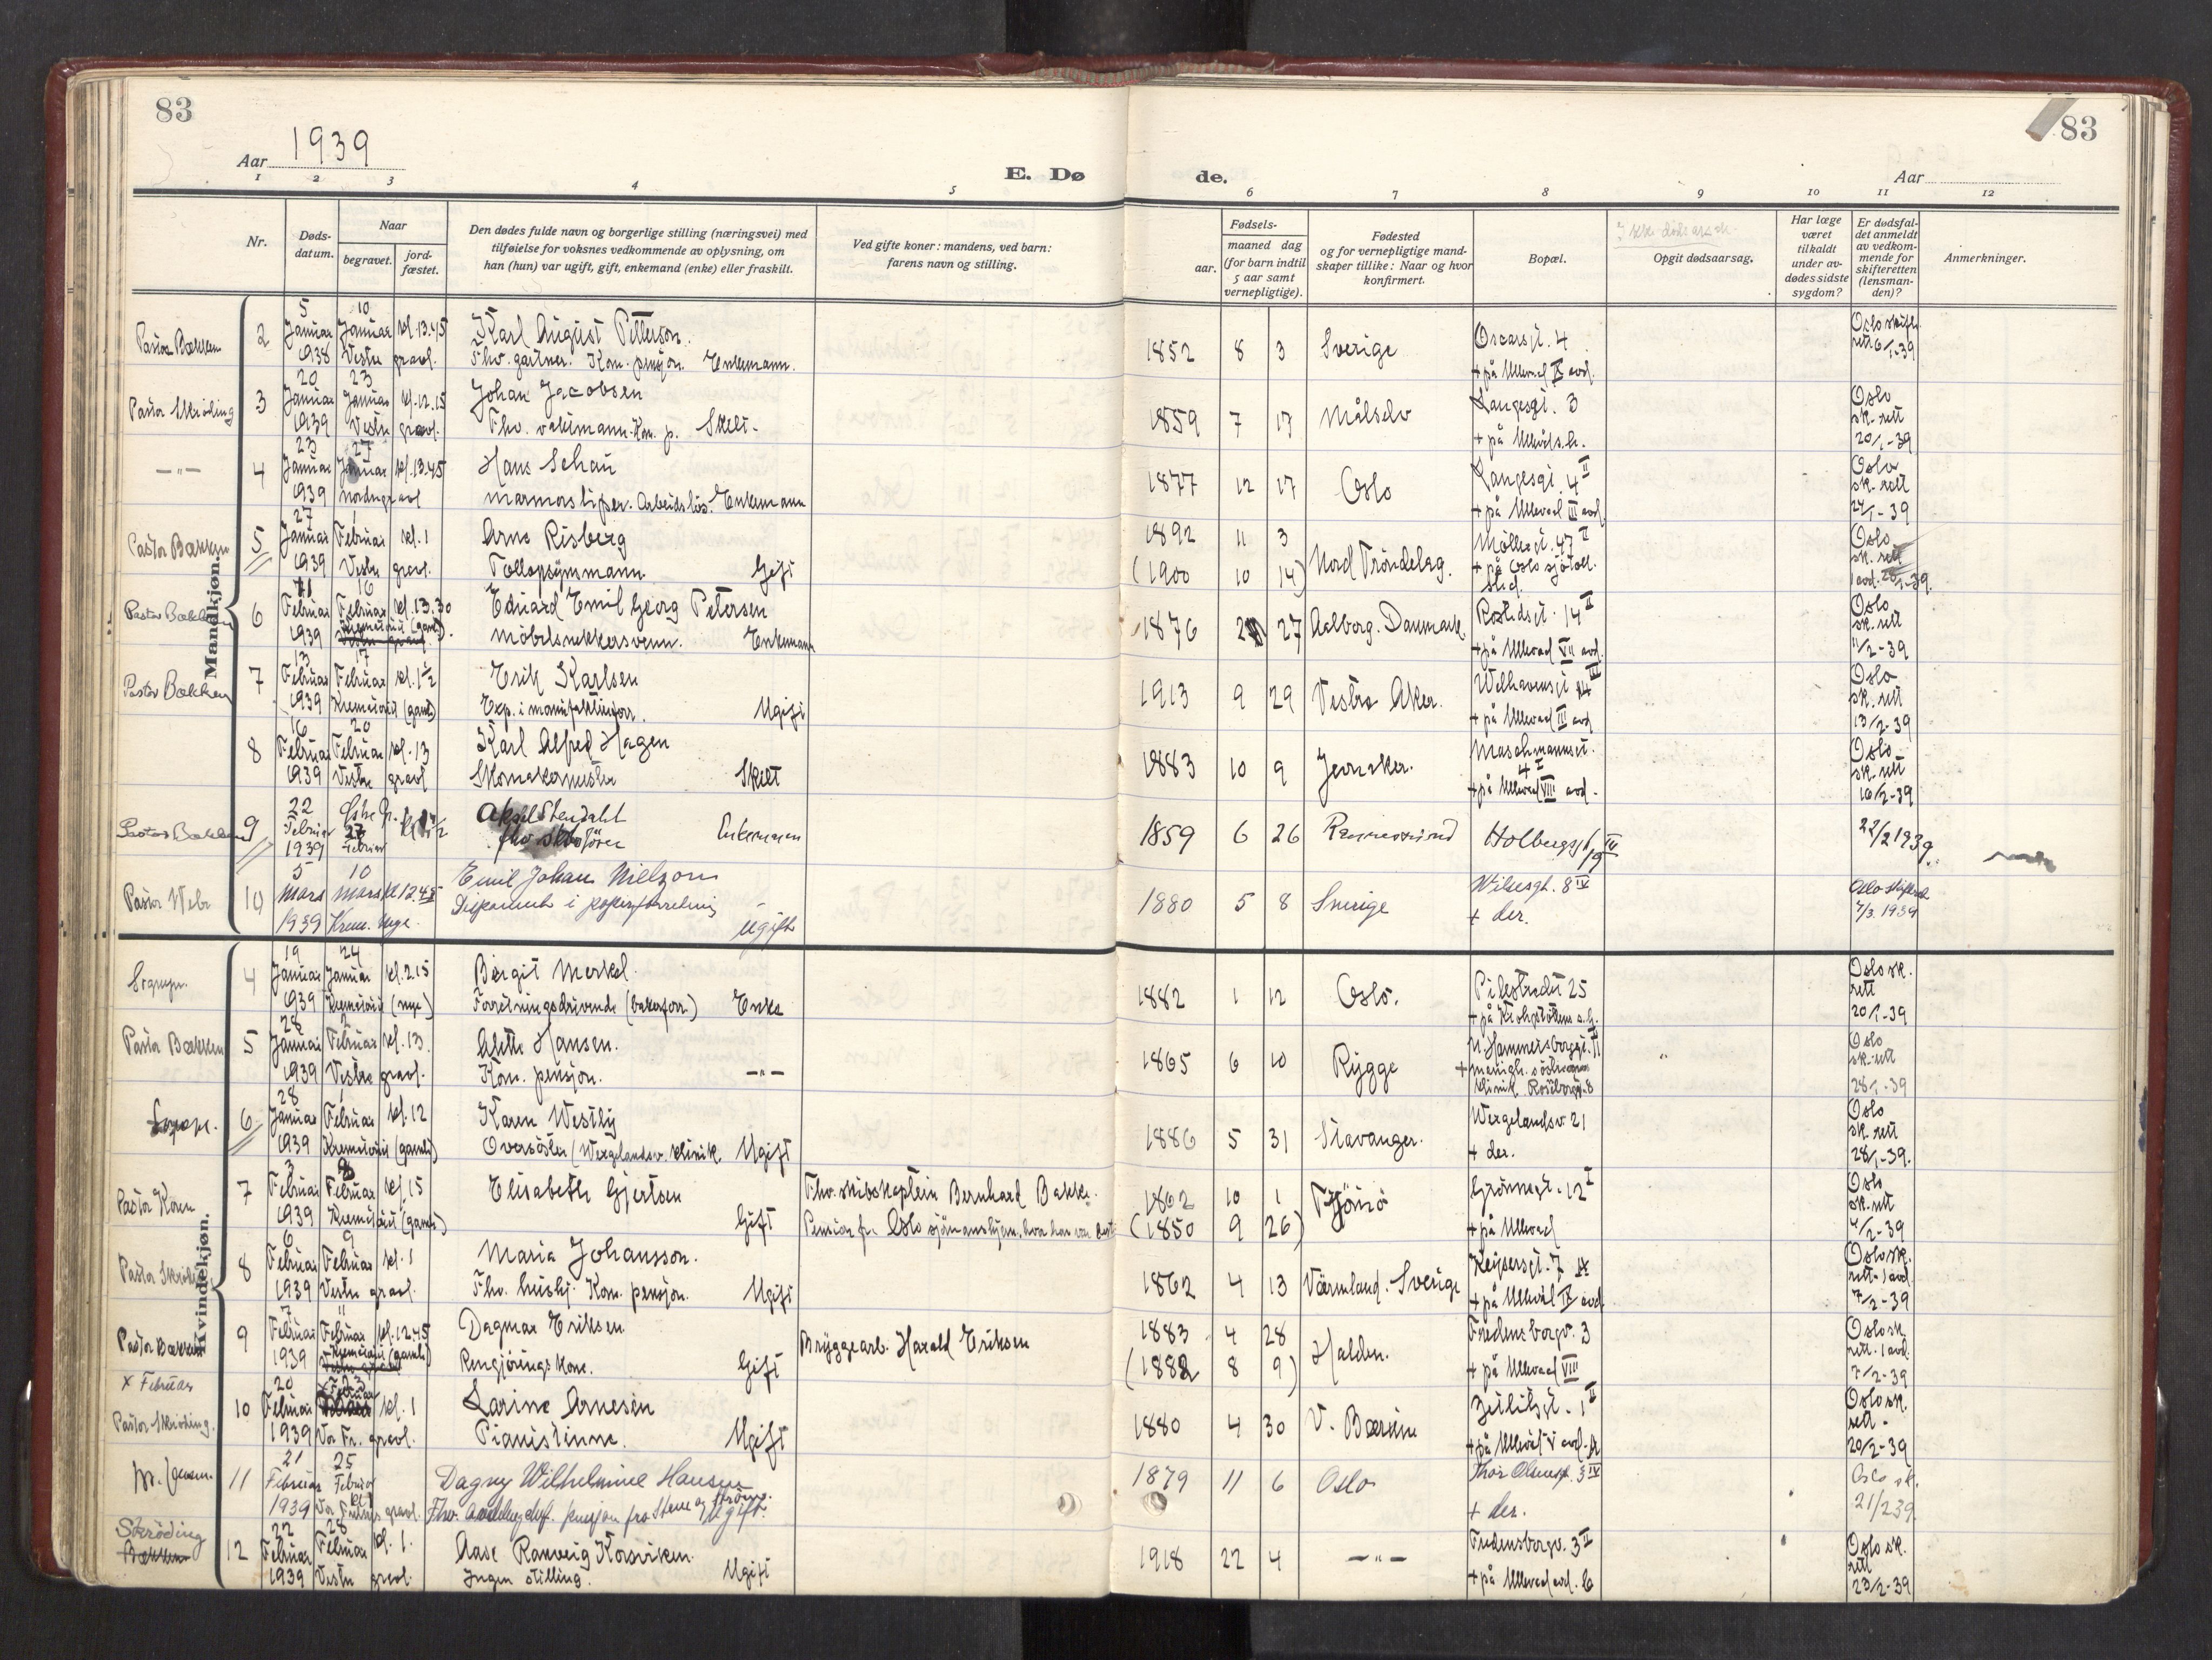 83
83
Aar 1939
E. Dø
de.
Aar
1 2 3 4 5 6 7 8 9 10 11 12
Nr.
Døds-
datum.
Naar
begravet.
jord-
fæstet.
Den dødes fulde navn og borgerlige stilling (næringsvei) med
tilføielse for voksnes vedkommende av oplysning, om
han (hun) var ugift, gift, enkemand (enke) eller fraskilt.
Ved gifte koner: mandens, ved barn:
farens navn og stilling.
Fødsels-
aar.
maaned dag
(for barn indtil
5 aar samt
vernepligtige).
Fødested
og for vernepligtige mand-
skaper tillike: Naar og hvor
konfirmert.
Bopæl.
Opgit dødsaarsag.
Har læge
været
tilkaldt
under av-
dødes sidste
sygdom?
Er dødsfal-
det anmeldt
av vedkom-
mende for
skifteretten
(lensman-
den)?
Anmerkninger.
Mandkjøn.
Pastor Bækken 2
5 Januar 1938
10 Januar kl. 13.45 Vestre gravl.
Karl August Petterson.
Fhv. gartner. Kom. pensjon. Enkemann.
1852 8 3 Sverige
Oscarsgt. 4
+ på Ullevaal IX avd.
Oslo skifte
rett 6/1-39
Pastor Skröding 3
20 Januar 1939
23 Januar kl. 12.15 Vestre gravl.
Johan Jacobsen
Fhv. vaktmann. Kom. p. Skilt.
1859 7 17 Målselv
Langesgt. 3
+ på Ullevåls.h.
Oslo
sk. rett
20/1-39
—"— 4
23 Januar 1939
27 Januar kl. 13.45 Nordre gravl
Hans Schau
marmorsliper. Arbeidslös. Enkemann
1877 12 17 Oslo
Langesgt. 4 II
+ på Ullevaal III avd.
Oslo
sk. rett
24/1-39
Pastor Bækken 5
27 Januar 1939
1 Februar kl. 1 Vestre gravl.
Arne Risberg
Tollopsynmann Gift
1892 11 3
(1900 10 14)
Nord Tröndelag.
Möllergt. 47 II
+ på Oslo sjötoll.
sted.
Oslo
sk. rett
1 avd. -39.
Pastor Bækken 6
11 Februar 1939
16 Februar kl. 13.30
Krematoriet (gamle).
Eduard Emil Georg Petersen
möbelsnekkersvenn. Enkemann
1876 2 27 Aalborg. Danmark.
Rostedsgt. 14 II
+ på Ullevaal VII avd.
Oslo
sk. rett
11/2-39
Pastor Bækken 7
13 Februar 1939
17 Februar kl. 1 1/2
Krematoriet (gamle)
Erik Karlsen
Exp. i manufakturforr. Ugift
1913 9 29 Vestre Aker.
Welhavensgt 14 III
+ på Ullevaal III avd
Oslo
sk. rett
13/2-39
8
16 Februar 1939
20 Februar kl. 13 Vestre gravl
Karl Alfred Hagen
Skomakermester Skilt
1883 10 9 Jevnaker.
Maschmannsgt.
4 I
+ på Ullevaal VIII avd.
Oslo
sk. rett
16/2-39
Pastor Bækken 9
22 Februar 1939
27 Februar
Aksel Stendahl
fhv. Enkemann
1859 6 26
Holbergsgt. 19 III
22/2 1939.
Pastor Webr 10
5 Mars 1939
10 Mars kl 12.45 Krem. nye.
Emil Johan Nielson
Disponent i Ugift
1880 5 8 Sverige
+ der.
Oslo skifterett
7/3. 1939
Kvindekjøn.
Sognepr. 4
19 Januar 1939
24 Januar kl. 2.15
Krematoriet (nye)
Birgit Merkel.
Forretningsdrivende (bakerforr.) Enke
1882 1 12 Oslo.
Pilestredet 25
+ på Krohgstöttens s.h.
Oslo sk.
rett
20/1-39
Pastor Bækken 5
28 Januar 1939
2 Februar kl. 13. Vestre gravl.
Alette Hansen.
Kom. pensjon. —"—
1865 6 10 Rygge
n. Hammersborggt. 11
+ menigh. söstrenes
klinik. Rosenborggt. 8
Oslo
sk. rett
28/1-39
Sognepr. 6
28 Januar 1939
1 Februar kl. 12
Krematoriet (gamle)
Karen Westly
Oversöster (Wergelandsv. klinik. Ugift
1886 5 31 Stavanger.
Wergelandsv. 21
+ der.
Oslo
sk. rett
28/1-39.
Pastor Koren 7
3 Februar 1939
8 Februar kl. 15
Krematoriet (gamle)
Elisabeth Gjertsen Gift
Fhv. skibskaptein Bernhard Bakke.
Pensjon fr. Oslo sjömannshjem, hvor han var best.
1862 10 1
(1850 9 26)
Tjömö
Grönnegt. 12 I
+ på Ullevaal
Oslo
sk. rett
4/2-39
Pastor Skröding 8
6 Februar 1939
9 Februar kl. 1 Vestre gravl.
Maria Johansson.
Fhv. hushj. Kom. pensjon. Ugift
1862 4 13 Värmland. Sverige
Keysersgt. 7
+ på Ullevål IX avd
Oslo sk.
rett. 1 avd.
7/2-39
Pastor Bækken 9
7 Februar 1939
11 Februar kl. 12.45
Krematoriet (gamle)
Dagmar Eriksen
Rengjöringskone. Gift
Bryggearb. Harald Eriksen
1883 4 28
(1882 8 9)
Halden.
Fredensborgv. 3
+ på Ullevaal VIII
Oslo sk.
rett. 1 avd.
7/2-39
x Februar
Pastor Skröding. 10
20 Februar 1939
x 23 Februar kl. 1 Vor Fr. gravl.
Karine Arnesen
Pianistinne. Ugift
1880 4 30 V. Bærum
Zeilitzgt. 1 II
+ på Ullevål V avd.
Oslo sk.
rett.
20/2-39
11
21 Februar 1939
25 Februar kl 1 Vor Frelsers gravl.
Dagny Wilhelmine Hansen
Fhv. avdelingschef. pensjon fra Steen og Ström. Ugift.
1879 11 6 Oslo
Thor Olsensgt. 3 IV
+ der.
Oslo sk.
21/2 39.
Skröding
12
22 Februar 1939
28 Februar kl. 1. Vestre gravl.
Aase Ranveig Korsviken.
Ingen stilling. Ugift
1918 22 4 —"—
Fredensborgv. 3 II
+ på Ullevaal avd. C
Oslo sk.
rett
23/2-39